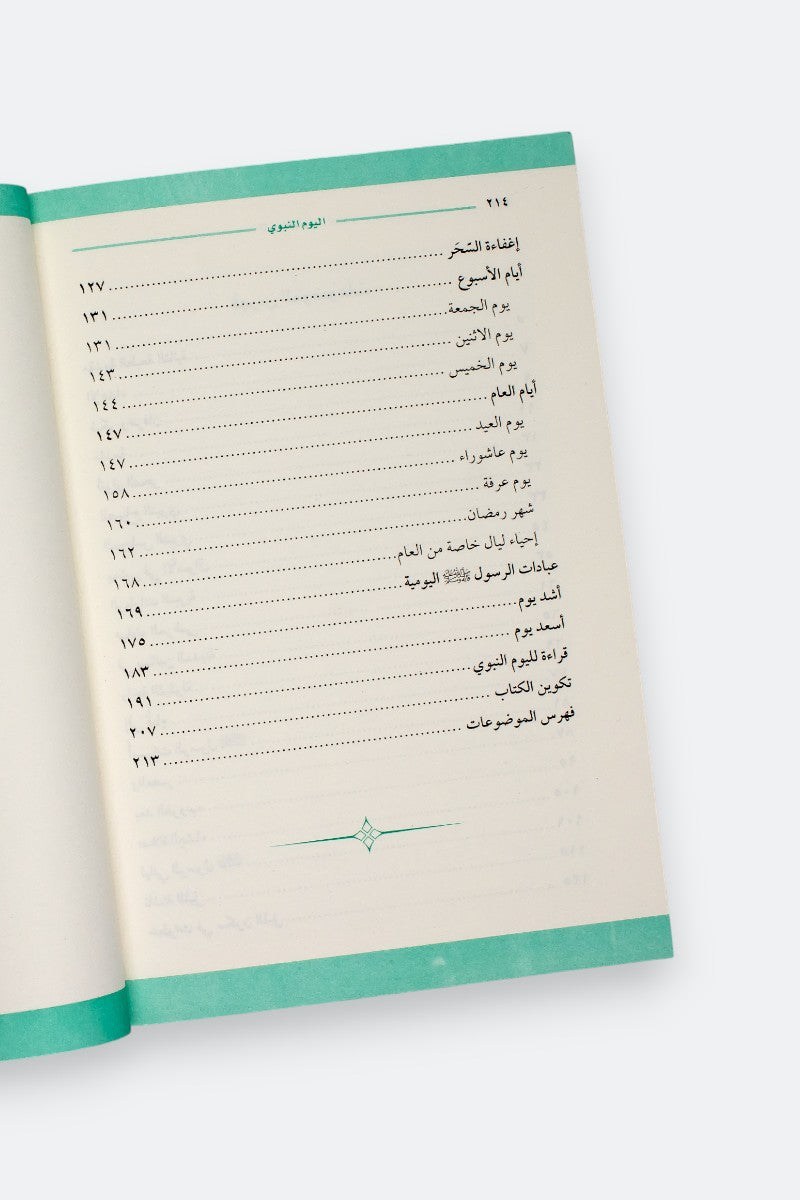 ٢١٤
اليوم النبوي
إغفاءة السَّحَر ١٢٧
أيام الأسبوع ١٣١
يوم الجمعة ١٣١
يوم الاثنين ١٤٣
يوم الخميس ١٤٤
أيام العام ١٤٧
يوم العيد ١٤٧
يوم عاشوراء ١٥٨
يوم عرفة ١٦٠
شهر رمضان ١٦٢
إحياء ليال خاصة من العام ١٦٨
عبادات الرسول ﷺ اليومية ١٦٩
أشد يوم ١٧٥
أسعد يوم ١٨٣
قراءة لليوم النبوي ١٩١
تكوين الكتاب ٢٠٧
فهرس الموضوعات ٢١٣